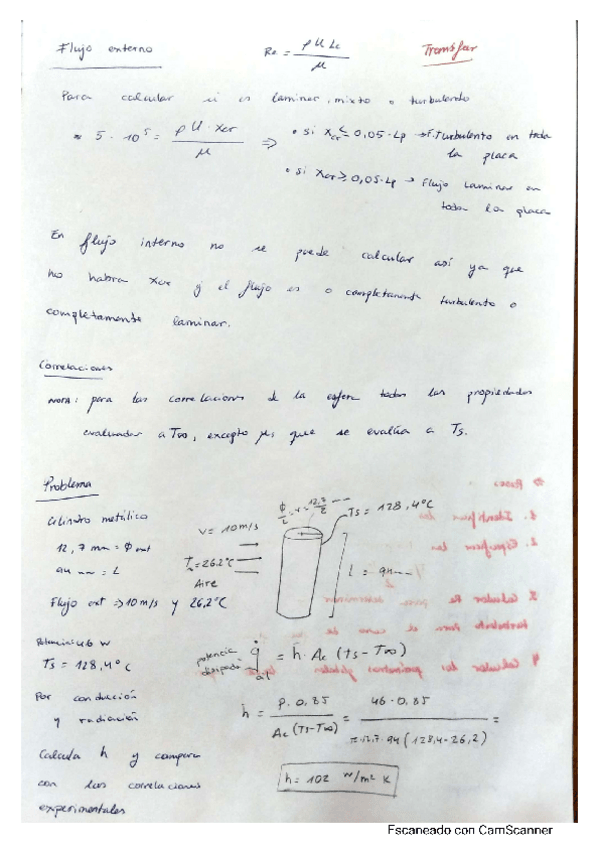 Flujo externo
Re = ρ U Lc / μ
Transfer
Para calcular si es laminar, mixto o turbulento
≈ 5 · 10^5 = ρ U · xcr / μ ⇒
• si Xcr ≤ 0,05 · Lp → F. Turbulento en toda
la placa
• si Xcr ≥ 0,05 · Lp → Flujo Laminar en
toda la placa
En flujo interno no se puede calcular así ya que
no habra xcr y el flujo es o completamente turbulento o
completamente laminar.
Correlaciones
NOTA: para las correlaciones de la esfera todas las propiedades
evaluadas a T∞, excepto μs que se evalúa a Ts.
Problema
Cilindro metálico
12,7 mm = Φ ext
94 mm = L
Flujo ext ⇒ 10 m/s y 26,2°C
Potencia: 46 W
Ts = 128,4°C
Por conducción
y radiación
Calcula h y compara
con las correlaciones
experimentales
V = 10 m/s
T∞ = 26.2°C
Aire
Φ/2 = r = 12,7/2
Ts = 128,4°C
L = 94
potencia
disipada
q = h · Ac (Ts - T∞)
h = P · 0,85 / Ac (Ts - T∞) = 46 · 0,85 / π · 12,7 · 94 (128,4 - 26,2) =
h = 102 W/m² K
Escaneado con CamScanner